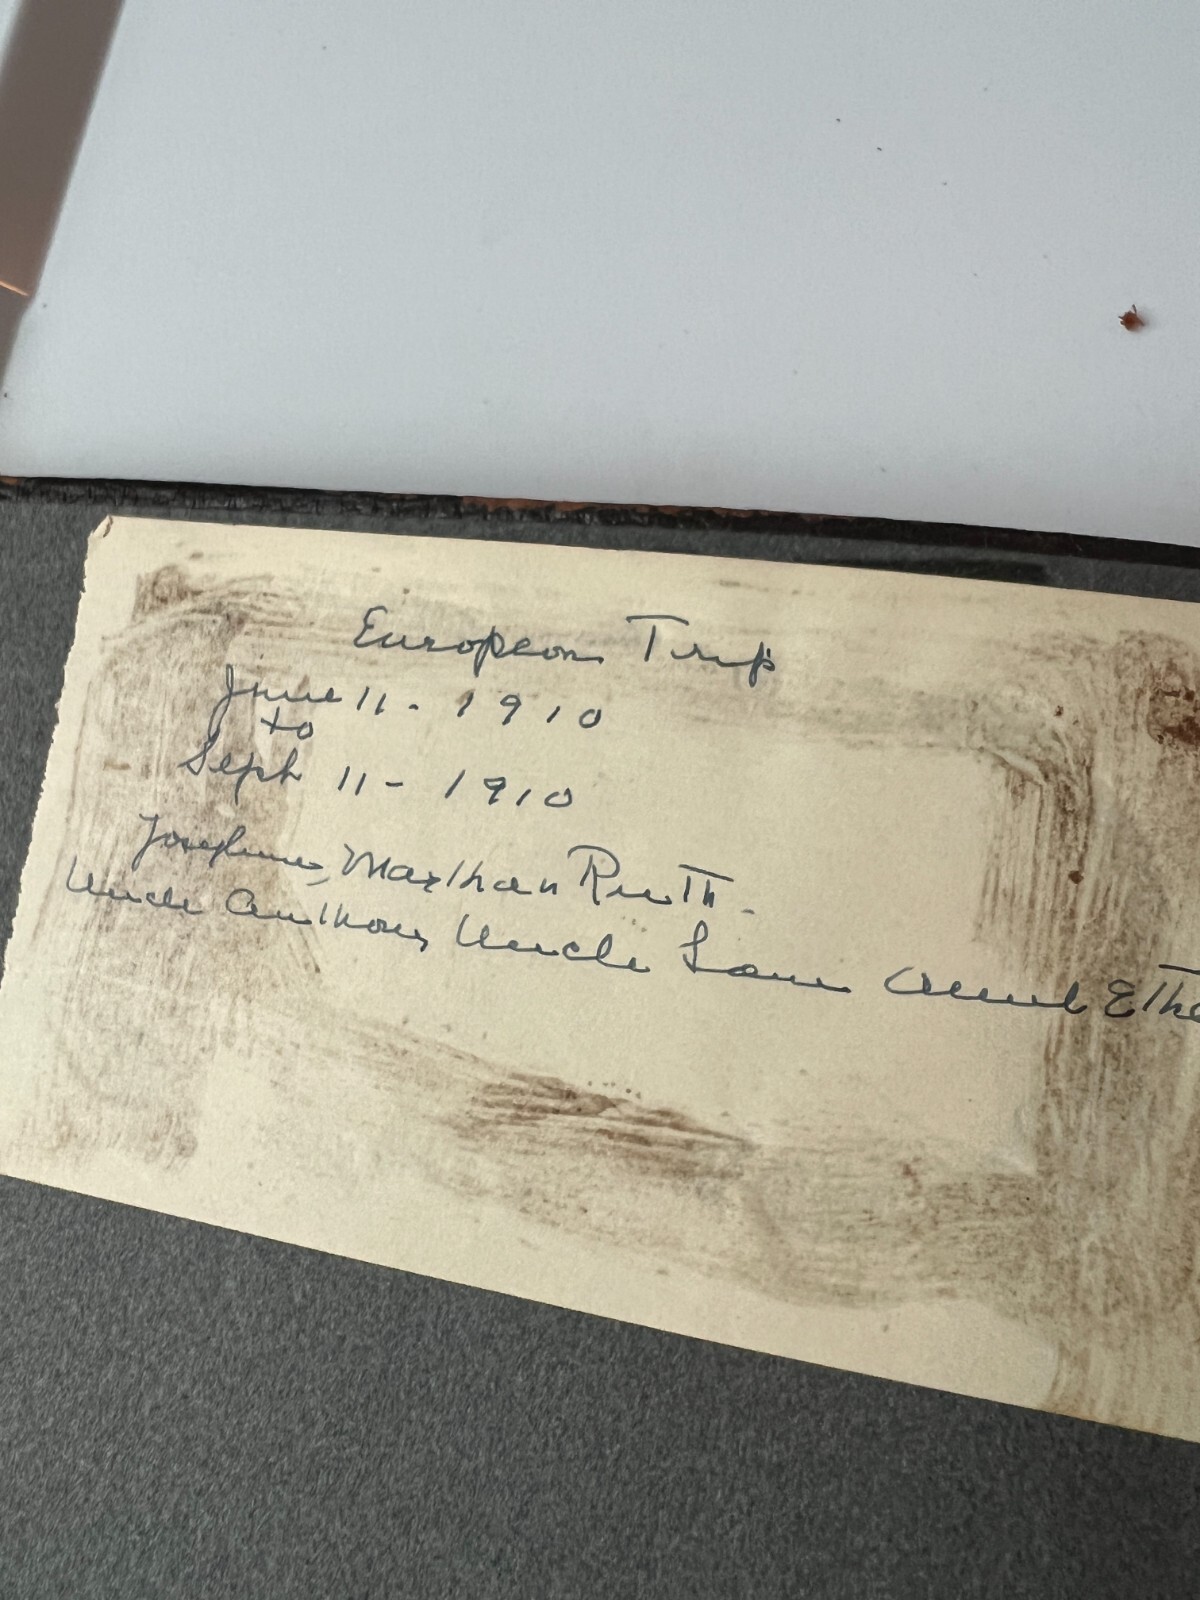 European Trip
June 11 - 1910
to
Sept 11 - 1910
Josephine, Marthan Ruth -
Uncle Anthony Uncle Sam Aunt Ethe